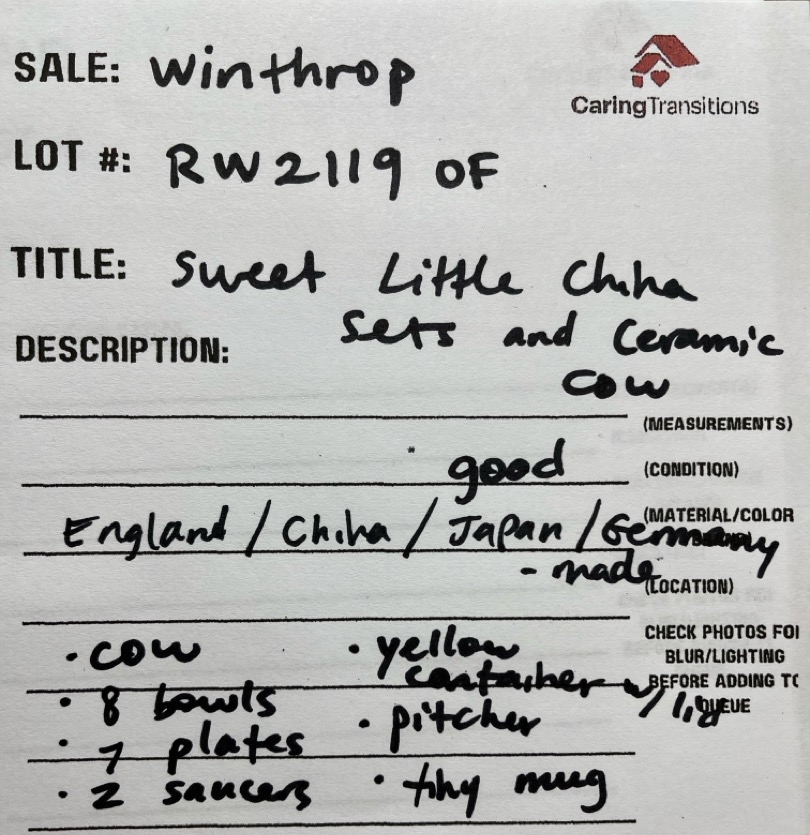 SALE: Winthrop
CaringTransitions
LOT #: RW2119 OF
TITLE: Sweet Little China
Sets and Ceramic
DESCRIPTION:
Cow
(MEASUREMENTS)
good (CONDITION)
England / China / Japan / Germany (MATERIAL/COLOR
- made
(LOCATION)
• cow • yellow
container w/ lid
• 8 bowls
• 7 plates • pitcher
• 2 saucers • tiny mug
CHECK PHOTOS FOR
BLUR/LIGHTING
BEFORE ADDING TO
QUEUE